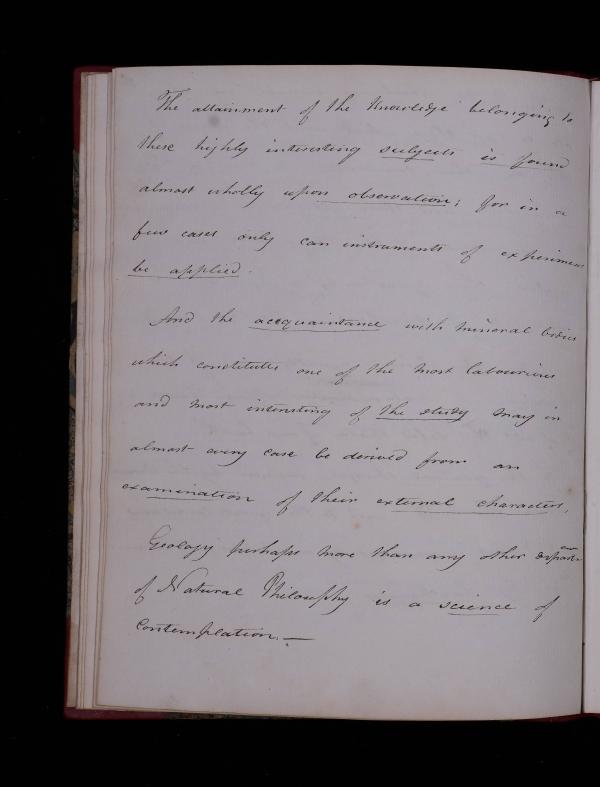 The attainment of the knowledge belonging to
these highly interesting subjects is found
almost wholly upon observation; for in a
few cases only can instruments of experiment
be applied.
And the accquaintance with mineral bodies
which constitutes one of the most labourious
and most interesting of the study may in
almost every case be derived from an
examination of their external characters.
Geology perhaps more than any other
of Natural Philosophy is a science of
Contemplation. —